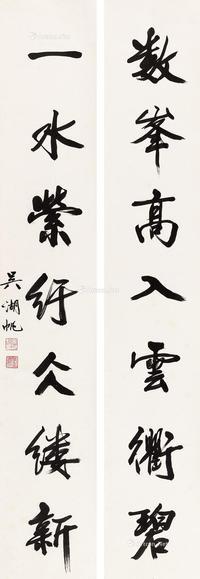 数峯高入雲衢碧
一水縈紆仌縷新
吳湖帆